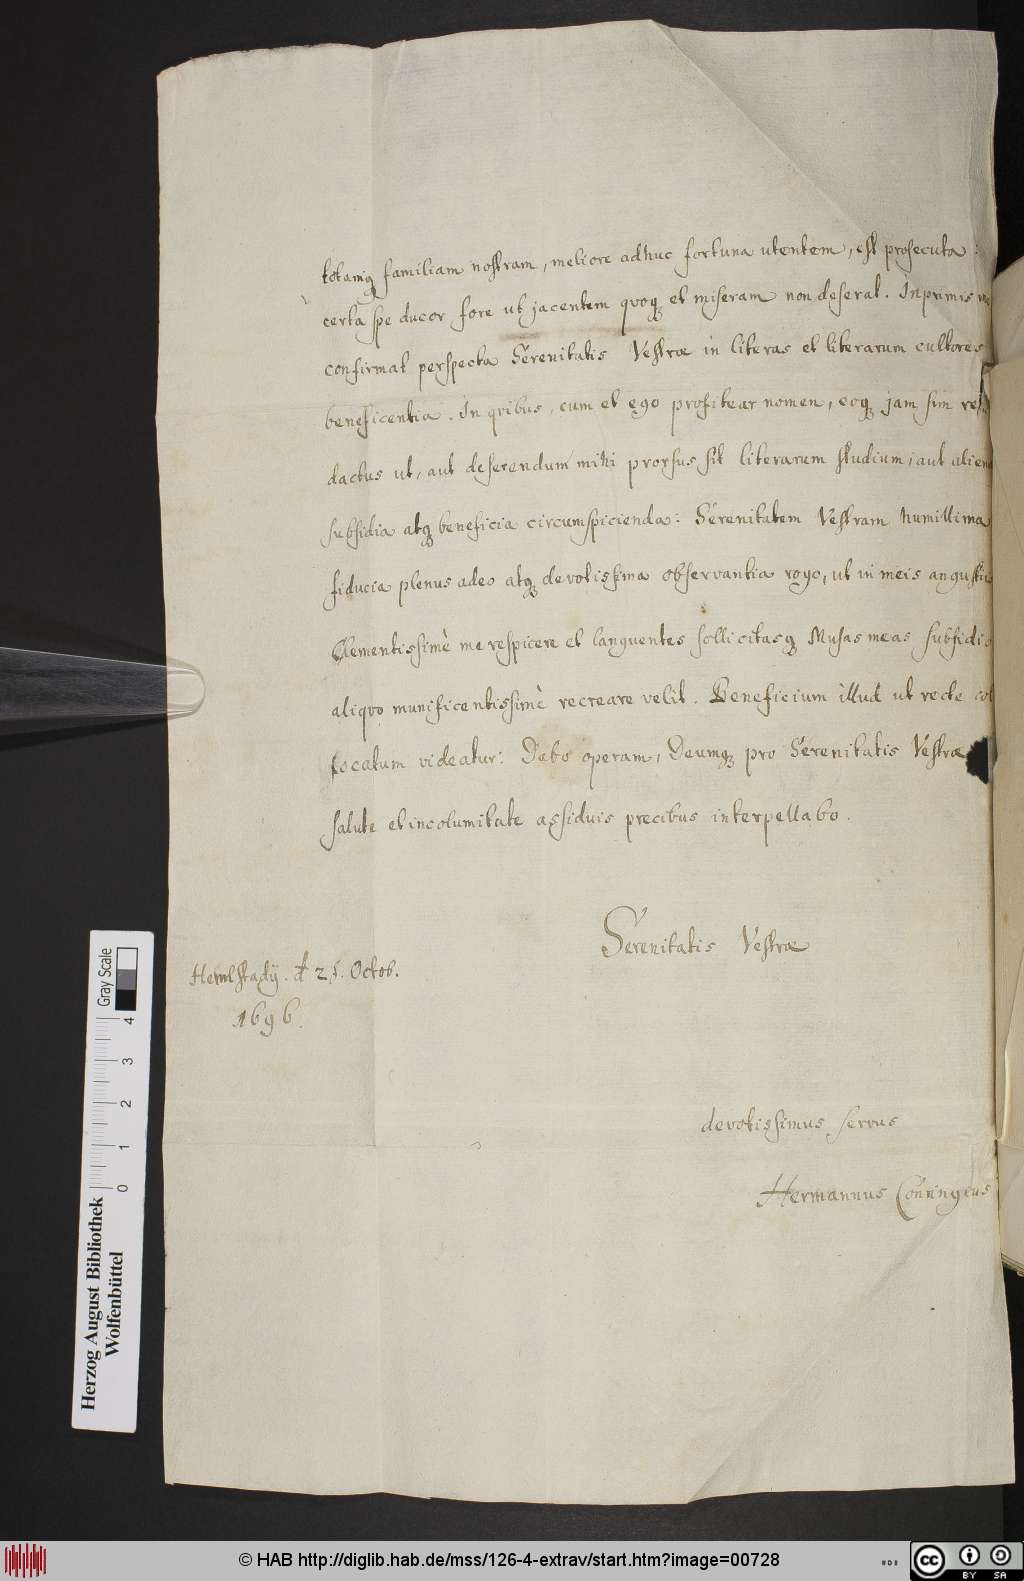 totamq familiam nostram, meliore adhuc fortuna utentem, est prosecuta:
certa spe ducor fore ut jacentem quoq et miseram non deserat. Inprimis me
confirmat perspecta Serenitatis Vestræ in literas et literarum cultores
beneficentia. In qvibus, cum et ego profitear nomen, eoq jam sim re=
dactus ut, aut deserendum mihi prorsus sit literarum studium, aut aliena
subsidia atq beneficia circumspicienda: Serenitatem Vestram humillima
fiducia plenus adeo atq devotissima observantia rogo, ut in meis angustiis
Clementissimè me respicere et languentes sollicitasq Musas meas subsidio
aliqvo munificentissimè recreare velit. Beneficium illud ut recte col
locatum videatur: Dabo operam, Deumq pro Serenitatis Vestræ
salute et incolumitate assiduis precibus interpellabo.
Serenitatis Vestræ
Helmstadij. d 25. Octob.
1696.
devotissimus servus
Hermannus Conringius
Gray Scale
0 1 2 3 4
Herzog August Bibliothek
Wolfenbüttel
© HAB http://diglib.hab.de/mss/126-4-extrav/start.htm?image=00728
cc BY SA